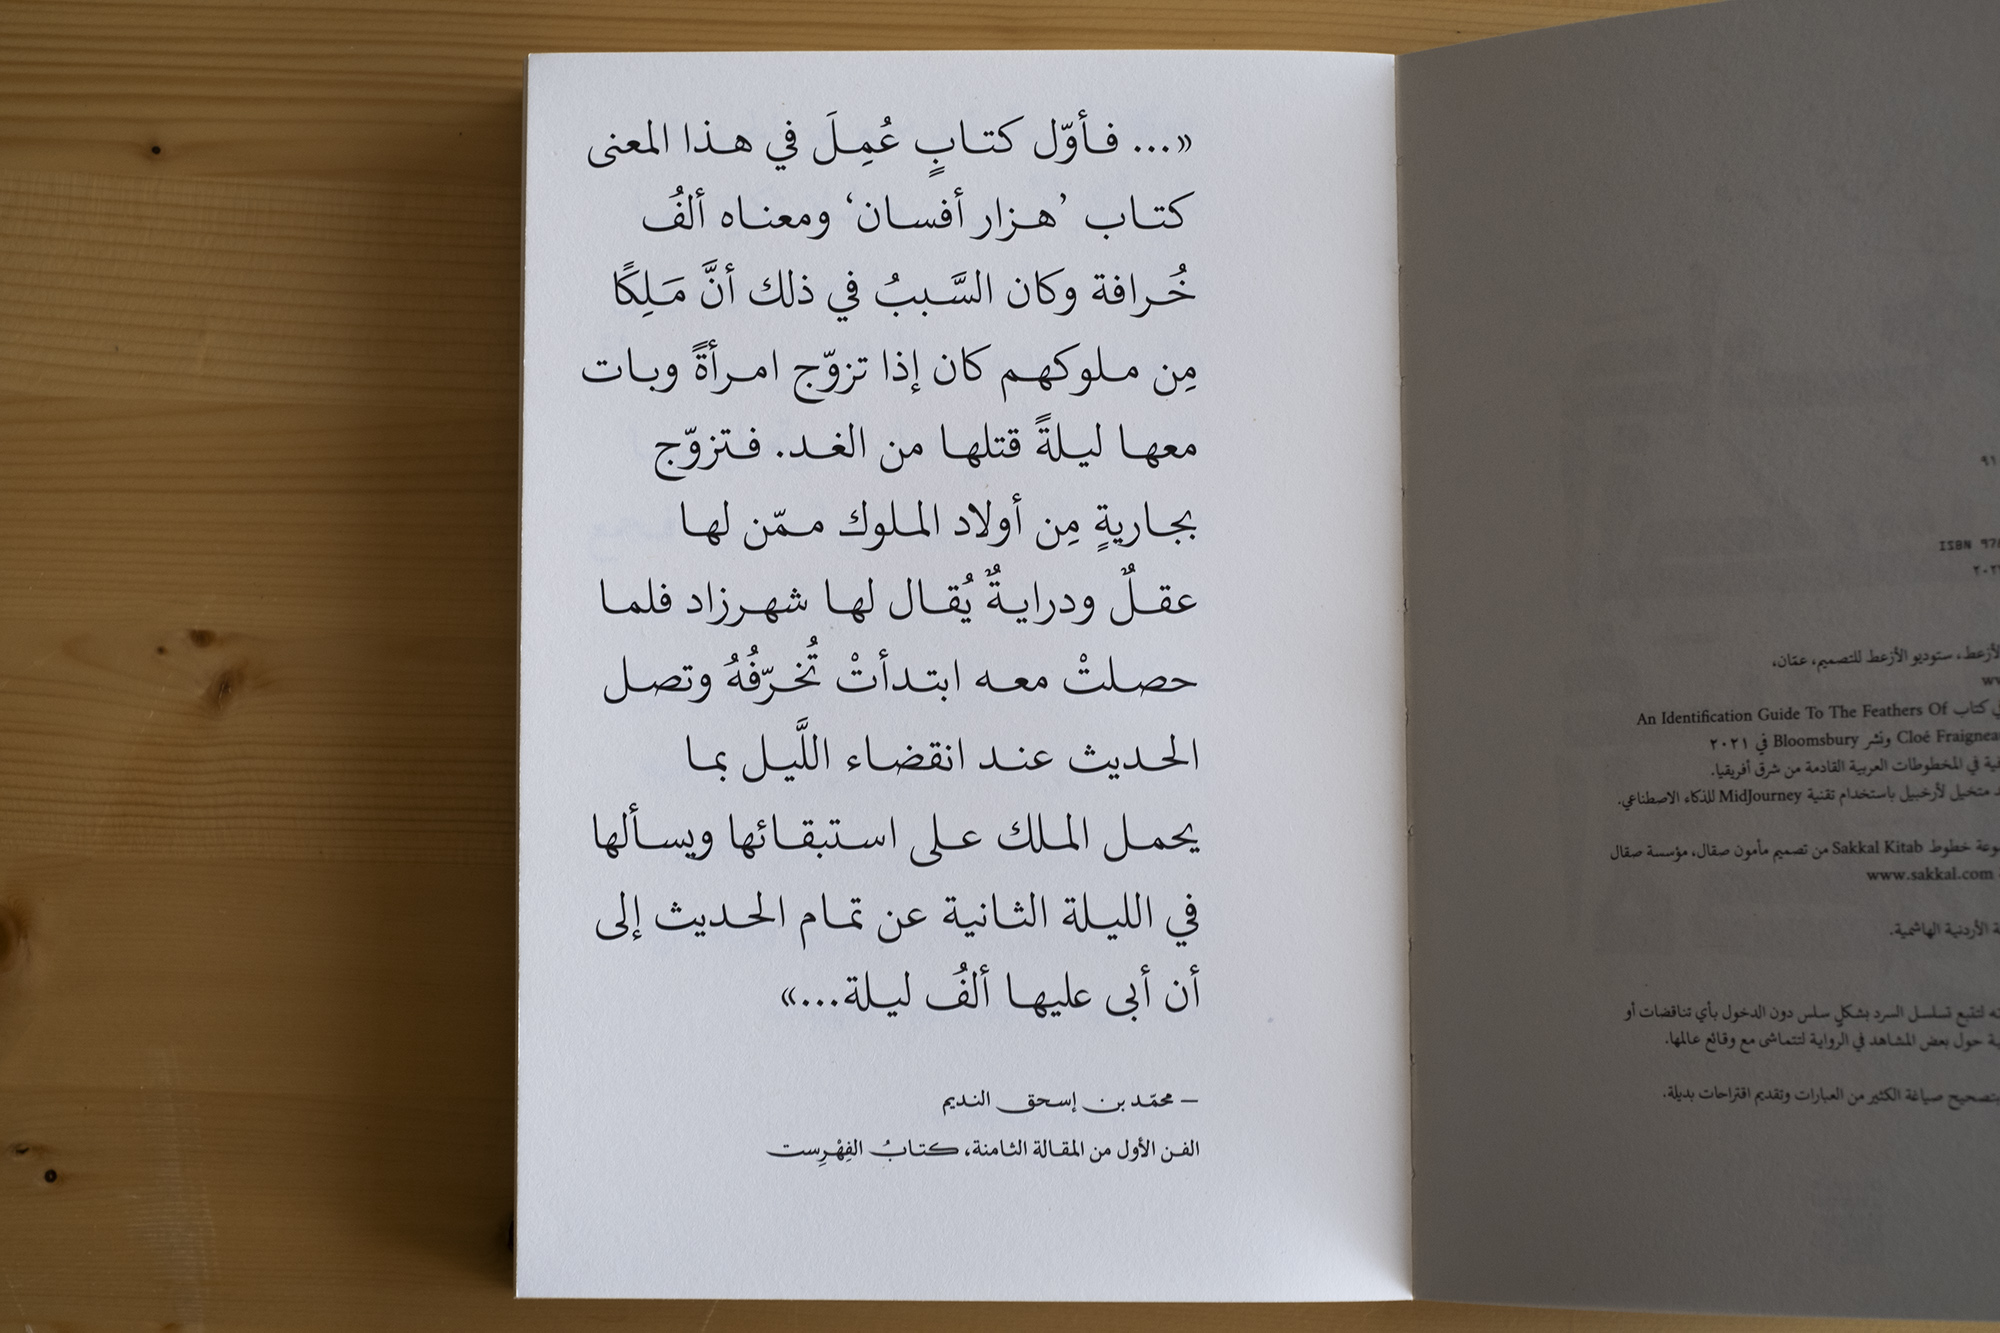 «... فأوّل كتابٍ عُمِلَ في هذا المعنى
كتاب ’هزار أفسان‘ ومعناه ألفُ
خُرافة وكان السَّببُ في ذلك أنَّ مَلِكًا
مِن ملوكهم كان إذا تزوّج امرأةً وبات
معها ليلةً قتلها من الغد. فتزوّج
بجاريةٍ مِن أولاد الملوك ممّن لها
عقلٌ ودرايةٌ يُقال لها شهرزاد فلما
حصلتْ معه ابتدأتْ تُخرّفُهُ وتصل
الحديث عند انقضاء اللَّيل بما
يحمل الملك على استبقائها ويسألها
في الليلة الثانية عن تمام الحديث إلى
أن أبى عليها ألفُ ليلة...»
— محمّد بن إسحق النديم
الفن الأول من المقالة الثامنة، كتابُ الفِهْرِست
٩١
ISBN 97
الأزعط، ستوديو الأزعط للتصميم، عمّان،
كتاب An Identification Guide To The Feathers Of
Cloé ونشر Bloomsbury في ٢٠٢١
في المخطوطات العربية القادمة من شرق أفريقيا.
متخيل لأرخبيل باستخدام تقنية MidJourney للذكاء الاصطناعي.
خطوط Sakkal Kitab من تصميم مأمون صقال، مؤسسة صقال
www.sakkal.com
الأردنية الهاشمية.
لتتبع تسلسل السرد بشكلٍ سلس دون الدخول بأي تناقضات أو
حول بعض المشاهد في الرواية لتتماشى مع وقائع عالمها.
بتصحيح صياغة الكثير من العبارات وتقديم اقتراحات بديلة.